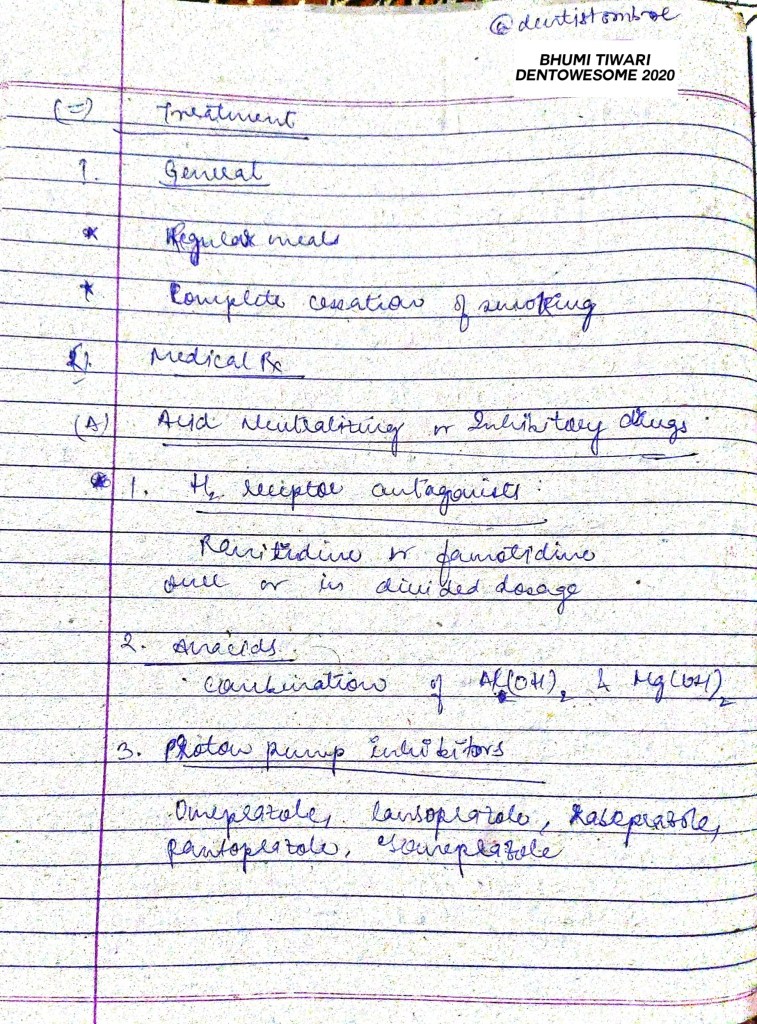 @dentistombre
BHUMI TIWARI
DENTOWESOME 2020
(=) Treatment
1. General
* Regular meals
* Complete cessation of smoking
2). Medical Rx
(A) Acid Neutralizing or Inhibitory drugs
* 1. H2 receptor antagonists:
Ranitidine or famotidine
once or in divided dosage
2. Anacids:
Combination of Al(OH)2 & Mg(OH)2
3. Proton pump inhibitors
Omeprazole, lansoprazole, Rabeprazole,
pantoprazole, esomeprazole